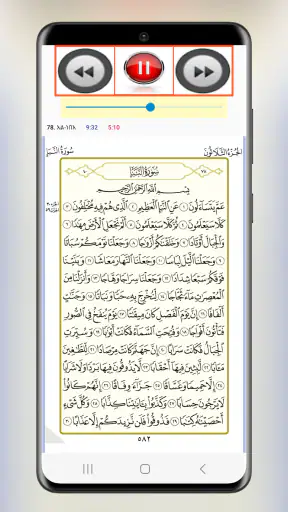 78. አል-ነበእ 9:32 5:10
الجُزْءُ الثَّلَاثُونَ سُورَةُ النَّبَإِ
سُورَةُ النَّبَإِ
بِسْمِ اللَّهِ الرَّحْمَٰنِ الرَّحِيمِ
عَمَّ يَتَسَاءَلُونَ ١ عَنِ النَّبَإِ الْعَظِيمِ ٢ الَّذِي هُمْ فِيهِ مُخْتَلِفُونَ ٣
كَلَّا سَيَعْلَمُونَ ٤ ثُمَّ كَلَّا سَيَعْلَمُونَ ٥ أَلَمْ نَجْعَلِ الْأَرْضَ مِهَٰدًا ٦
وَالْجِبَالَ أَوْتَادًا ٧ وَخَلَقْنَٰكُمْ أَزْوَٰجًا ٨ وَجَعَلْنَا نَوْمَكُمْ سُبَاتًا
٩ وَجَعَلْنَا الَّيْلَ لِبَاسًا ١٠ وَجَعَلْنَا النَّهَارَ مَعَاشًا ١١ وَبَنَيْنَا
فَوْقَكُمْ سَبْعًا شِدَادًا ١٢ وَجَعَلْنَا سِرَاجًا وَهَّاجًا ١٣ وَأَنزَلْنَا مِنَ
الْمُعْصِرَٰتِ مَاءً ثَجَّاجًا ١٤ لِّنُخْرِجَ بِهِ حَبًّا وَنَبَاتًا ١٥ وَجَنَّٰتٍ
أَلْفَافًا ١٦ إِنَّ يَوْمَ الْفَصْلِ كَانَ مِيقَٰتًا ١٧ يَوْمَ يُنفَخُ فِي الصُّورِ
فَتَأْتُونَ أَفْوَاجًا ١٨ وَفُتِحَتِ السَّمَاءُ فَكَانَتْ أَبْوَٰبًا ١٩ وَسُيِّرَتِ
الْجِبَالُ فَكَانَتْ سَرَابًا ٢٠ إِنَّ جَهَنَّمَ كَانَتْ مِرْصَادًا ٢١ لِّلطَّٰغِينَ
مَـَٔابًا ٢٢ لَّٰبِثِينَ فِيهَا أَحْقَابًا ٢٣ لَّا يَذُوقُونَ فِيهَا بَرْدًا وَلَا شَرَابًا
٢٤ إِلَّا حَمِيمًا وَغَسَّاقًا ٢٥ جَزَاءً وِفَاقًا ٢٦ إِنَّهُمْ كَانُوا
لَا يَرْجُونَ حِسَابًا ٢٧ وَكَذَّبُوا بِـَٔايَٰتِنَا كِذَّابًا ٢٨ وَكُلَّ شَيْءٍ
أَحْصَيْنَٰهُ كِتَٰبًا ٢٩ فَذُوقُوا فَلَن نَّزِيدَكُمْ إِلَّا عَذَابًا ٣٠
٥٨٢